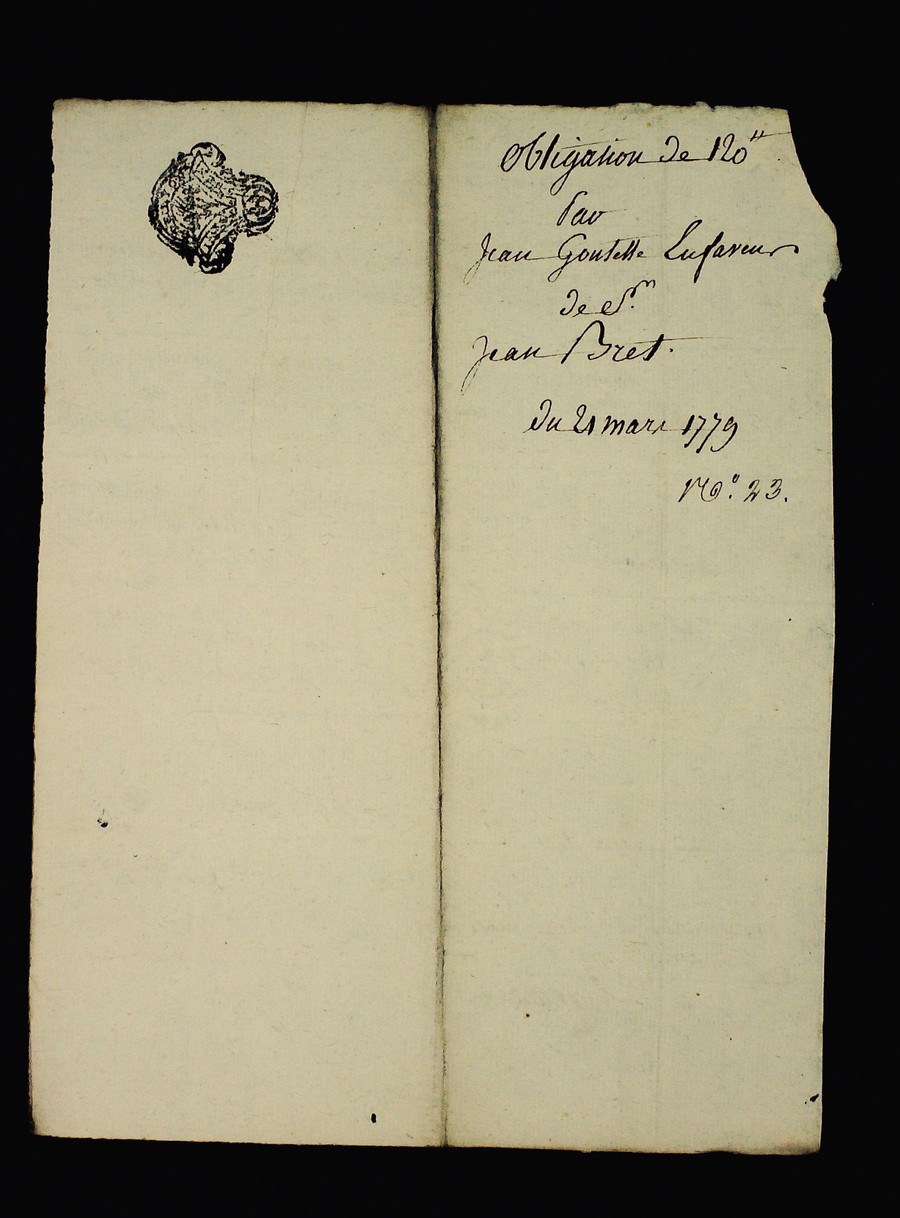 Obligation de 120ᵗᵗ
Par
Jean Goutelle En faveur
de Sr.
Jean Bret.
du 21 mars 1779
No. 23.